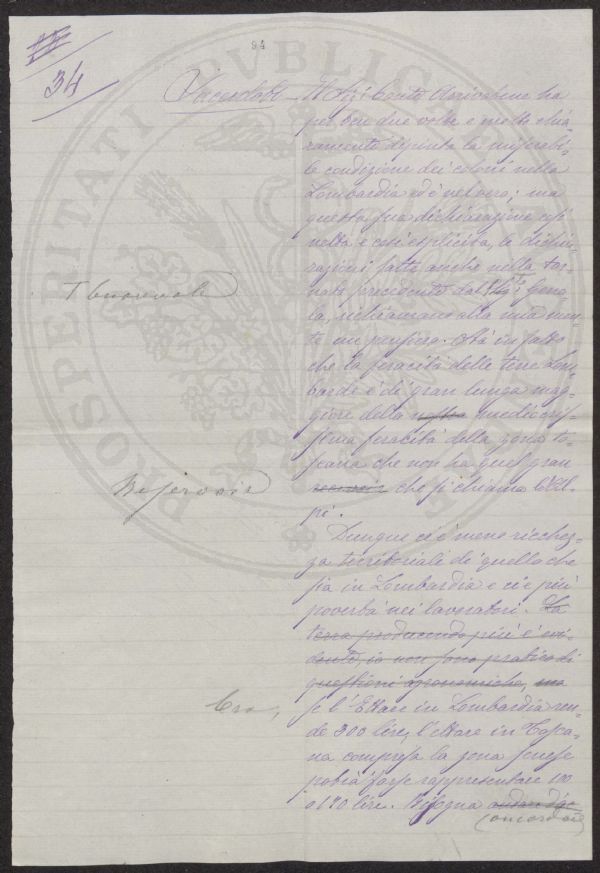 94
34
Il Sig. Conte Arrivabene ha
per ben due volte e molto chia-
ramente dipinta la miserabi-
le condizione dei coloni nella
Lombardia ed è nel vero; ma
questa sua dichiarazione così
netta e così esplicita, le dichia-
razioni fatte anche nella tor-
nata precedente dal
richiamano alla mia men-
te un pensiero. Sta in fatto
che la feracità delle terre Lom-
barde è di gran lunga mag-
giore della nostra mediocris-
sima feracità della zona to-
scana che non ha quel gran
reservoir che si chiama l'Al-
pi.
Reservoir
Dunque ci è meno ricchez-
za territoriali di quello che
sia in Lombardia e ci è più
povertà nei lavoratori. La
terra producendo più è evi-
dente, io non sono pratico di
questioni agronomiche, ma
Ora,
se l'Ettare in Lombardia ren-
de 300 lire, l'ettare in Tosca-
na compresa la zona senese
potrà forse rappresentare 100
o 120 lire. Bisogna
concordare
PROSPERITATI PVBLICAE